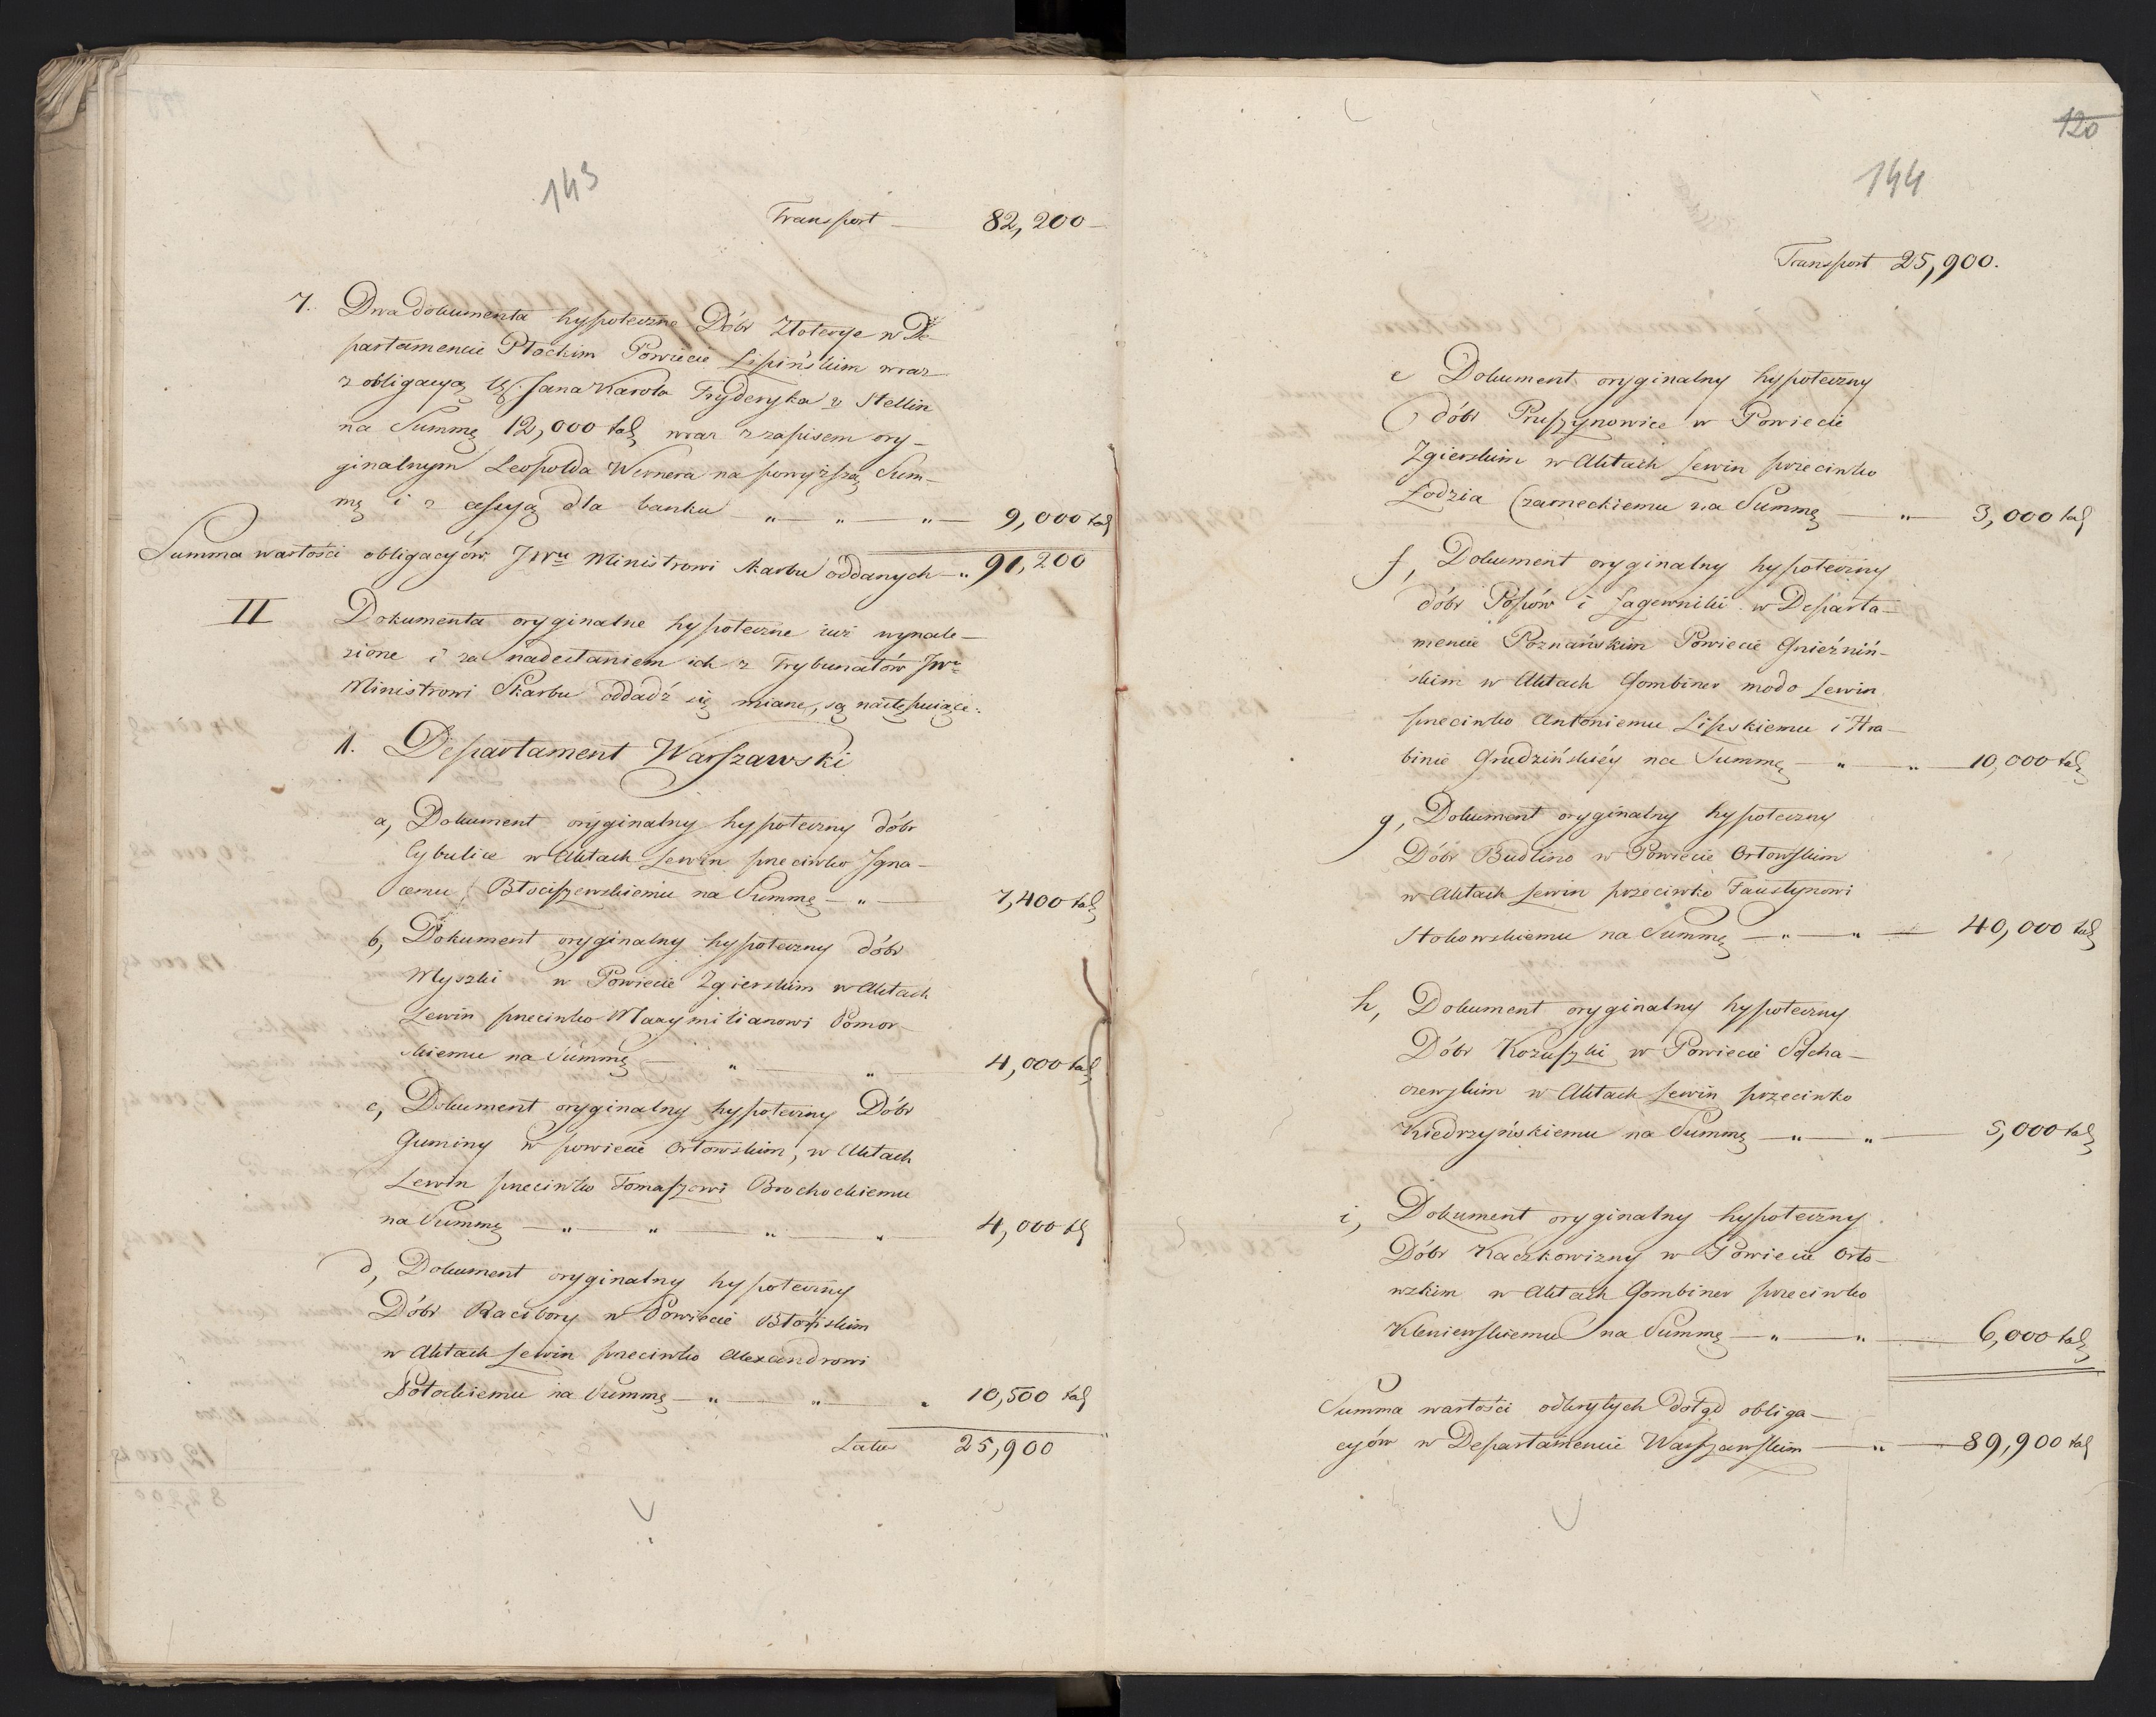 143
Transport — 82,200 —
7. Dwa dokumenta hypoteczne Dóbr Złoterye w De-
partamencie Płockim Powiecie Lipińskim wraz
z obligacyą Ur. Jana Karola Fryderyka v Stellin
na Summę 12,000 tal wraz z zapisem ory-
ginalnym Leopolda Wernera na powyższą Sum-
mę i z cessyą dla banku „ — „ — „ — 9,000 tal
Summa wartości obligacyów JWu Ministrowi Skarbu oddanych — „ 91,200
II Dokumenta oryginalne hypoteczne iuż wynale-
zione i za nadesłaniem ich z Trybunałów JWu
Ministrowi Skarbu oddadź się miane, są następuiące:
1. Departament Warszawski
a, Dokument oryginalny hypoteczny dóbr
Cybulice w Aktach Lewin przeciwko Igna-
cemu Błociszewskiemu na Summę — „ — 7,400 tal
b, Dokument oryginalny hypoteczny dóbr
Myszki w Powiecie Zgierskim w Aktach
Lewin przeciwko Maxymilianowi Pomor-
skiemu na Summę — „ — „ — 4,000 tal
c, Dokument oryginalny hypoteczny Dóbr
Guminy w powiecie Orłowskim, w Aktach
Lewin przeciwko Tomaszowi Brochockiemu
na Summę — „ — „ — „ — „ — 4,000 tl
d, Dokument oryginalny hypoteczny
Dóbr Racibory w Powiecie Błońskim
w Aktach Lewin przeciwko Alexandrowi
Potockiemu na Summę — „ — „ — „ 10,500 tal
Latus 25,900
120
144
Transport 25,900.
e Dokument oryginalny hypoteczny
dóbr Pruszynowice w Powiecie
Zgierskim w Aktach Lewin przeciwko
Łodzia Czarneckiemu na Summę — „ — 3,000 tal
f, Dokument oryginalny hypoteczny
dóbr Popów i Łagewniki w Departa-
mencie Poznańskim Powiecie Gnieźniń-
skim w Aktach Gombiner modo Lewin
przeciwko Antoniemu Lipskiemu i Hra-
binie Grudzińskiéy na Summę — „ — „ — 10,000 tal
g, Dokument oryginalny hypoteczny
Dóbr Budlino w Powiecie Orłowskim
w Aktach Lewin przeciwko Faustynowi
Stokowskiemu na Summę — „ — „ — 40,000 tal
h, Dokument oryginalny hypoteczny
Dóbr Kozuszki w Powiecie Socha-
czewskim w Aktach Lewin przeciwko
Kiedrzyńskiemu na Summę — „ — „ — 5,000 tal
i, Dokument oryginalny hypoteczny
Dóbr Kaczkowizny w Powiecie Orło-
wskim w Aktach Gombiner przeciwko
Kleniewskiemu na Summę — „ — „ — 6,000 tal
Summa wartości odkrytych dotąd obliga-
cyów w Departamencie Warszawskim — „ — 89,900 tal